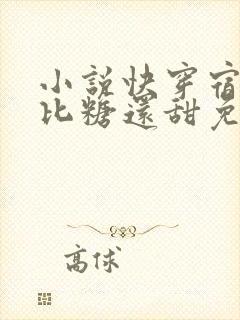 小說快穿宿
比糖還甜免
高俅